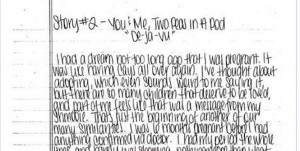 Story #2 - You & Me, Two Peas in A Pod
"De-Ja-Vu"
I had a dream not too long ago that I was pregnant. It
was like having all over again. I've thought about
adopting, which even sounds weird to me saying it,
but there are so many children that deserve to be loved,
and part of me feels like that was a message from my
That's just the beginning of another of our
many similarities. I was months pregnant before I had
anything confirmed via doctor. I had my period the whole